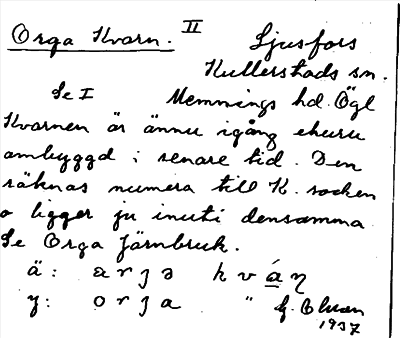 Orga Kvarn. II Ljusfors
Kullerstads sn.
Se I Memmings hd. Ögl
Kvarnen är ännu igång ehuru
ombyggd i senare tid. Den
räknas numera till K. socken
o ligger ju inuti densamma
Se Orga Järnbruk.
ä: arʒə kvá̱ɳ
y: orʒa "
1937